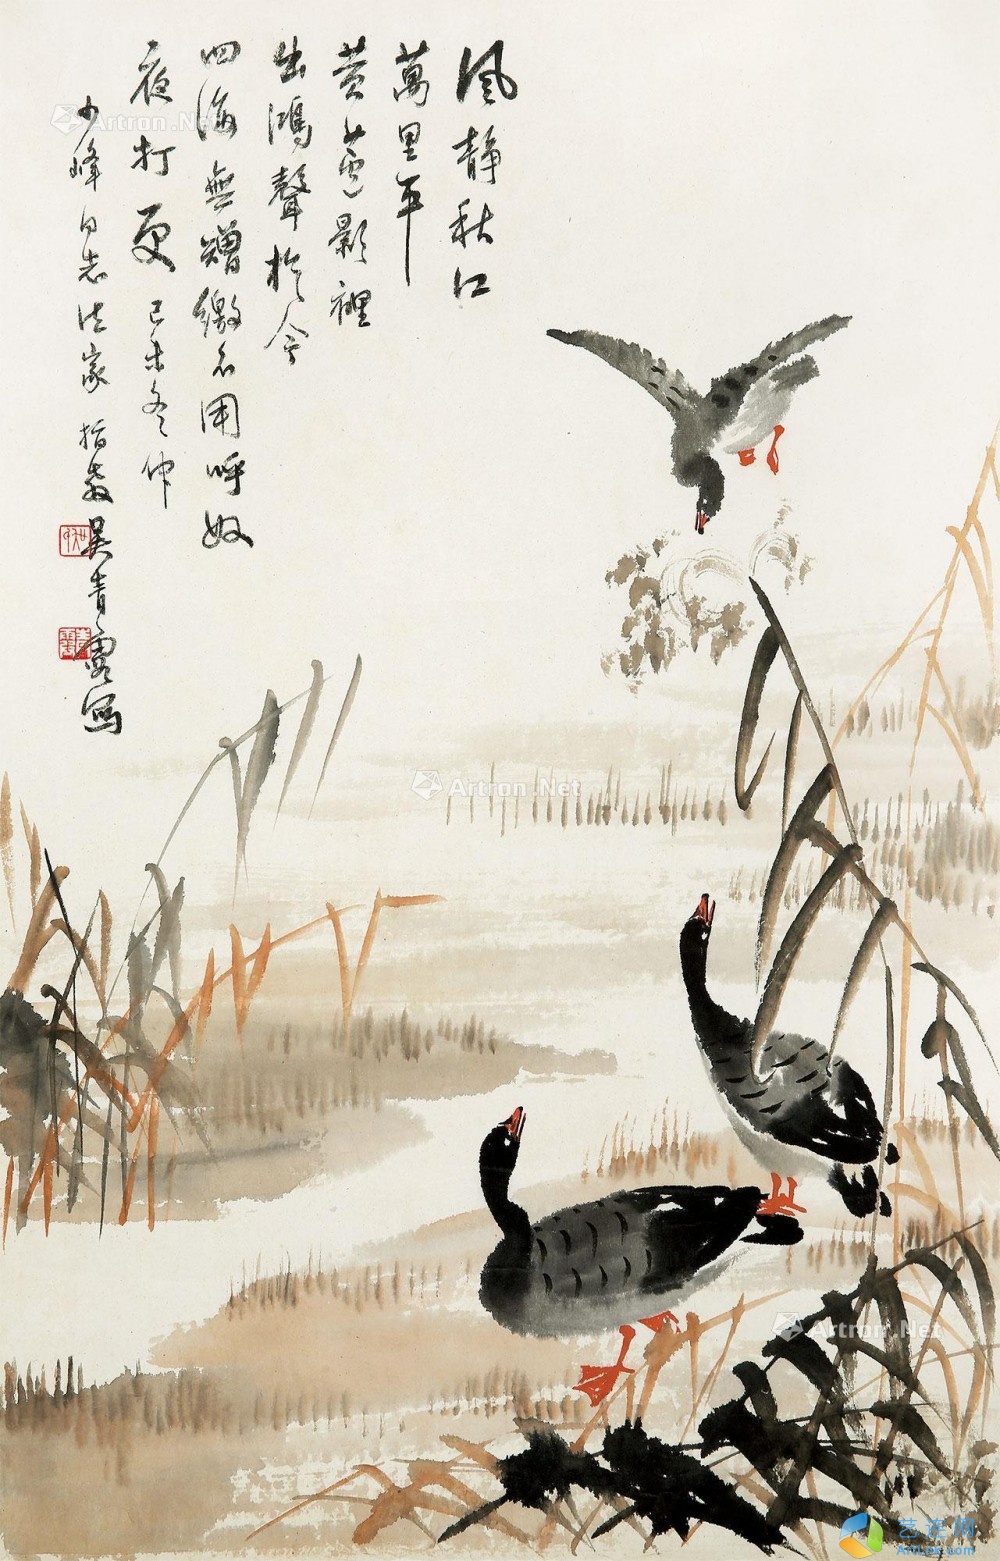 風静秋江
萬里平
黄蘆影裡
出鴻聲於今
四海無矰繳不用呼奴
夜打更 己未冬仲
少峰同志法家指教 吴青霞写
青霞
Artron.Net
Artron.Net
Artron.Net
艺流网